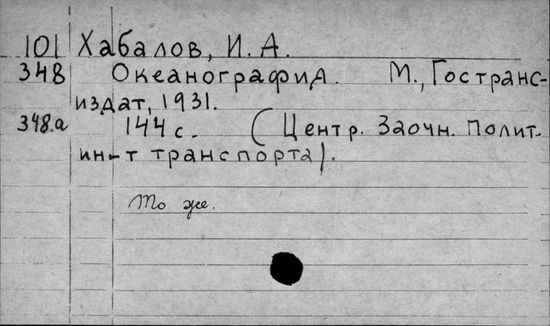 101 Хабалов, И. А.
348 Океанография. М., Гостранс-
издат, 1931.
348.а 144 с. (Центр. Заочн. Полит.
ин-т транспорта).
То же.